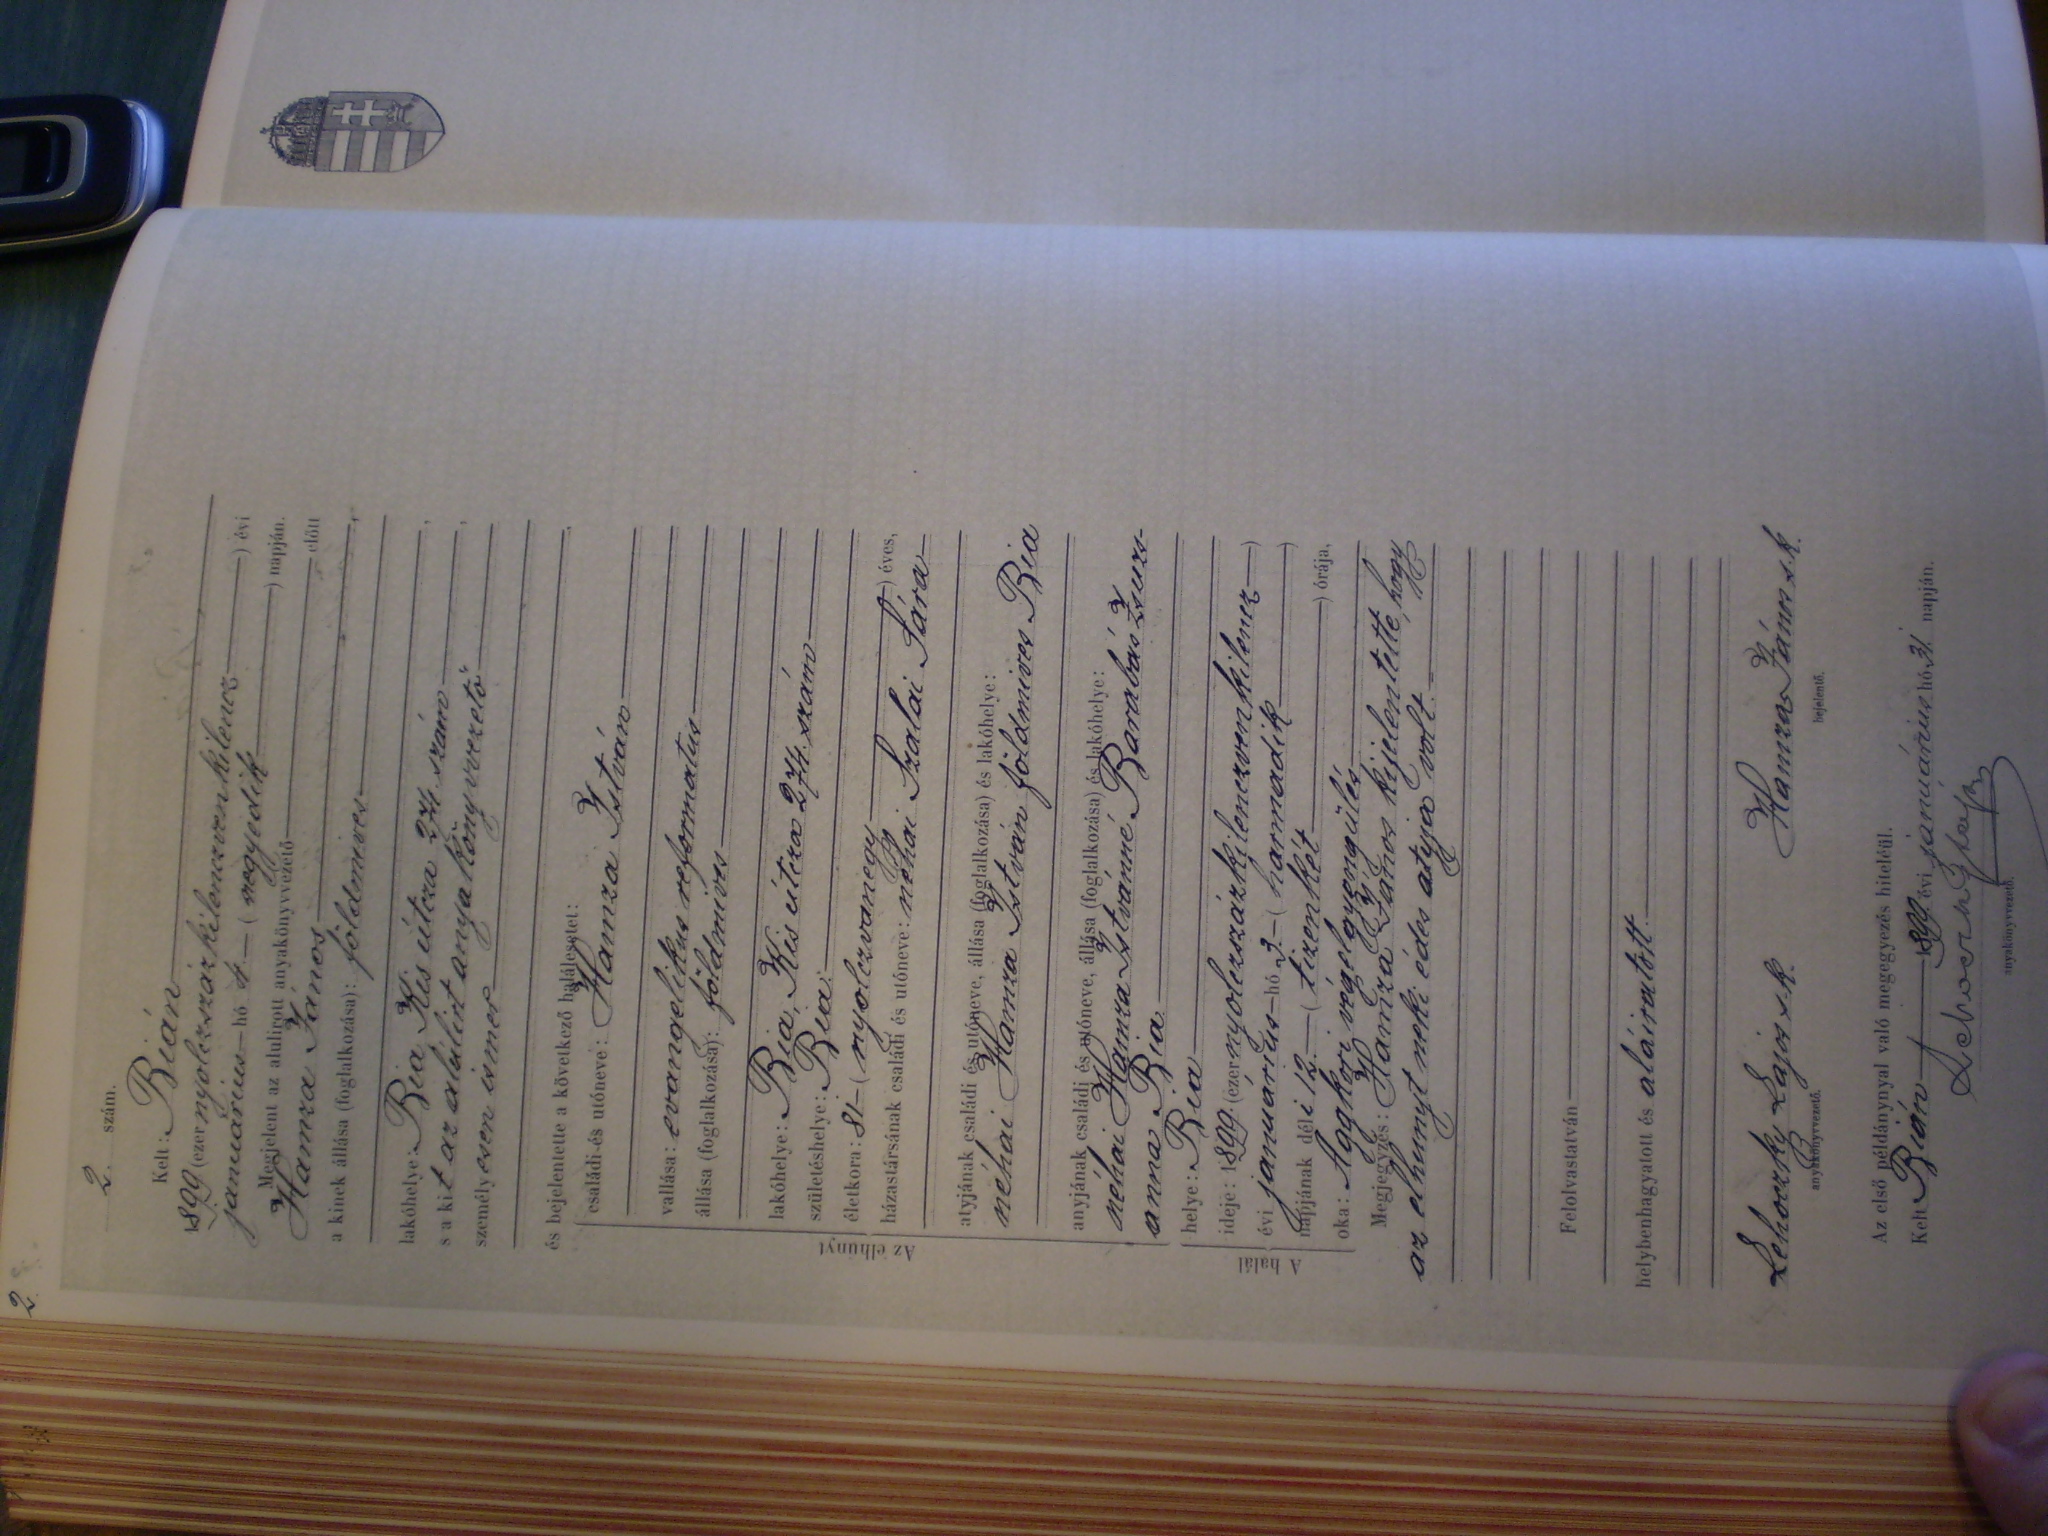 2.
2. szám.
Kelt: Bián
1899 (ezernyolczszázkilenczvenkilencz) évi
januárius hó 4. (negyedik) napján.
Megjelent az alulirott anyakönyvvezető előtt
Hamza János,
a kinek állása (foglalkozása): földmives
lakóhelye: Bia, Kis útcza 274. szám,
s a kit az alulirt anyakönyvvezető
személyesen ismer
és bejelentette a következő halálesetet:
Az elhunyt
családi és utóneve: Hamza István
vallása: evangelikus reformatus
állása (foglalkozása): földmives
lakóhelye: Bia, Kis útcza 274. szám
születéshelye: Bia
életkora: 81 (nyolczvanegy) éves,
házastársának családi és utóneve: néhai Szalai Sára
atyjának családi és utóneve, állása (foglalkozása) és lakóhelye:
néhai Hamza István földmives Bia
anyjának családi és utóneve, állása (foglalkozása) és lakóhelye:
néhai Hamza Istvánné Barabás Zsuzs
anna Bia
A halál
helye: Bia
ideje: 1899. (ezernyolczszázkilenczvenkilencz)
évi januárius hó 3. (harmadik)
napjának dél i 12. (tizenkét) órája,
oka: Aggkori végelgyengülés
Megjegyzés: Hamza János kijelentette, hogy
az elhunyt neki édes atyja volt.
Felolvastatván
helybenhagyatott és aláiratott.
Lehoczky Lajos s.k.
anyakönyvvezető.
Hamza János s.k.
bejelentő.
Az első példánynyal való megegyezés hiteléül.
Kelt Bián 1899. évi januárius hó 31 napján.
anyakönyvvezető.